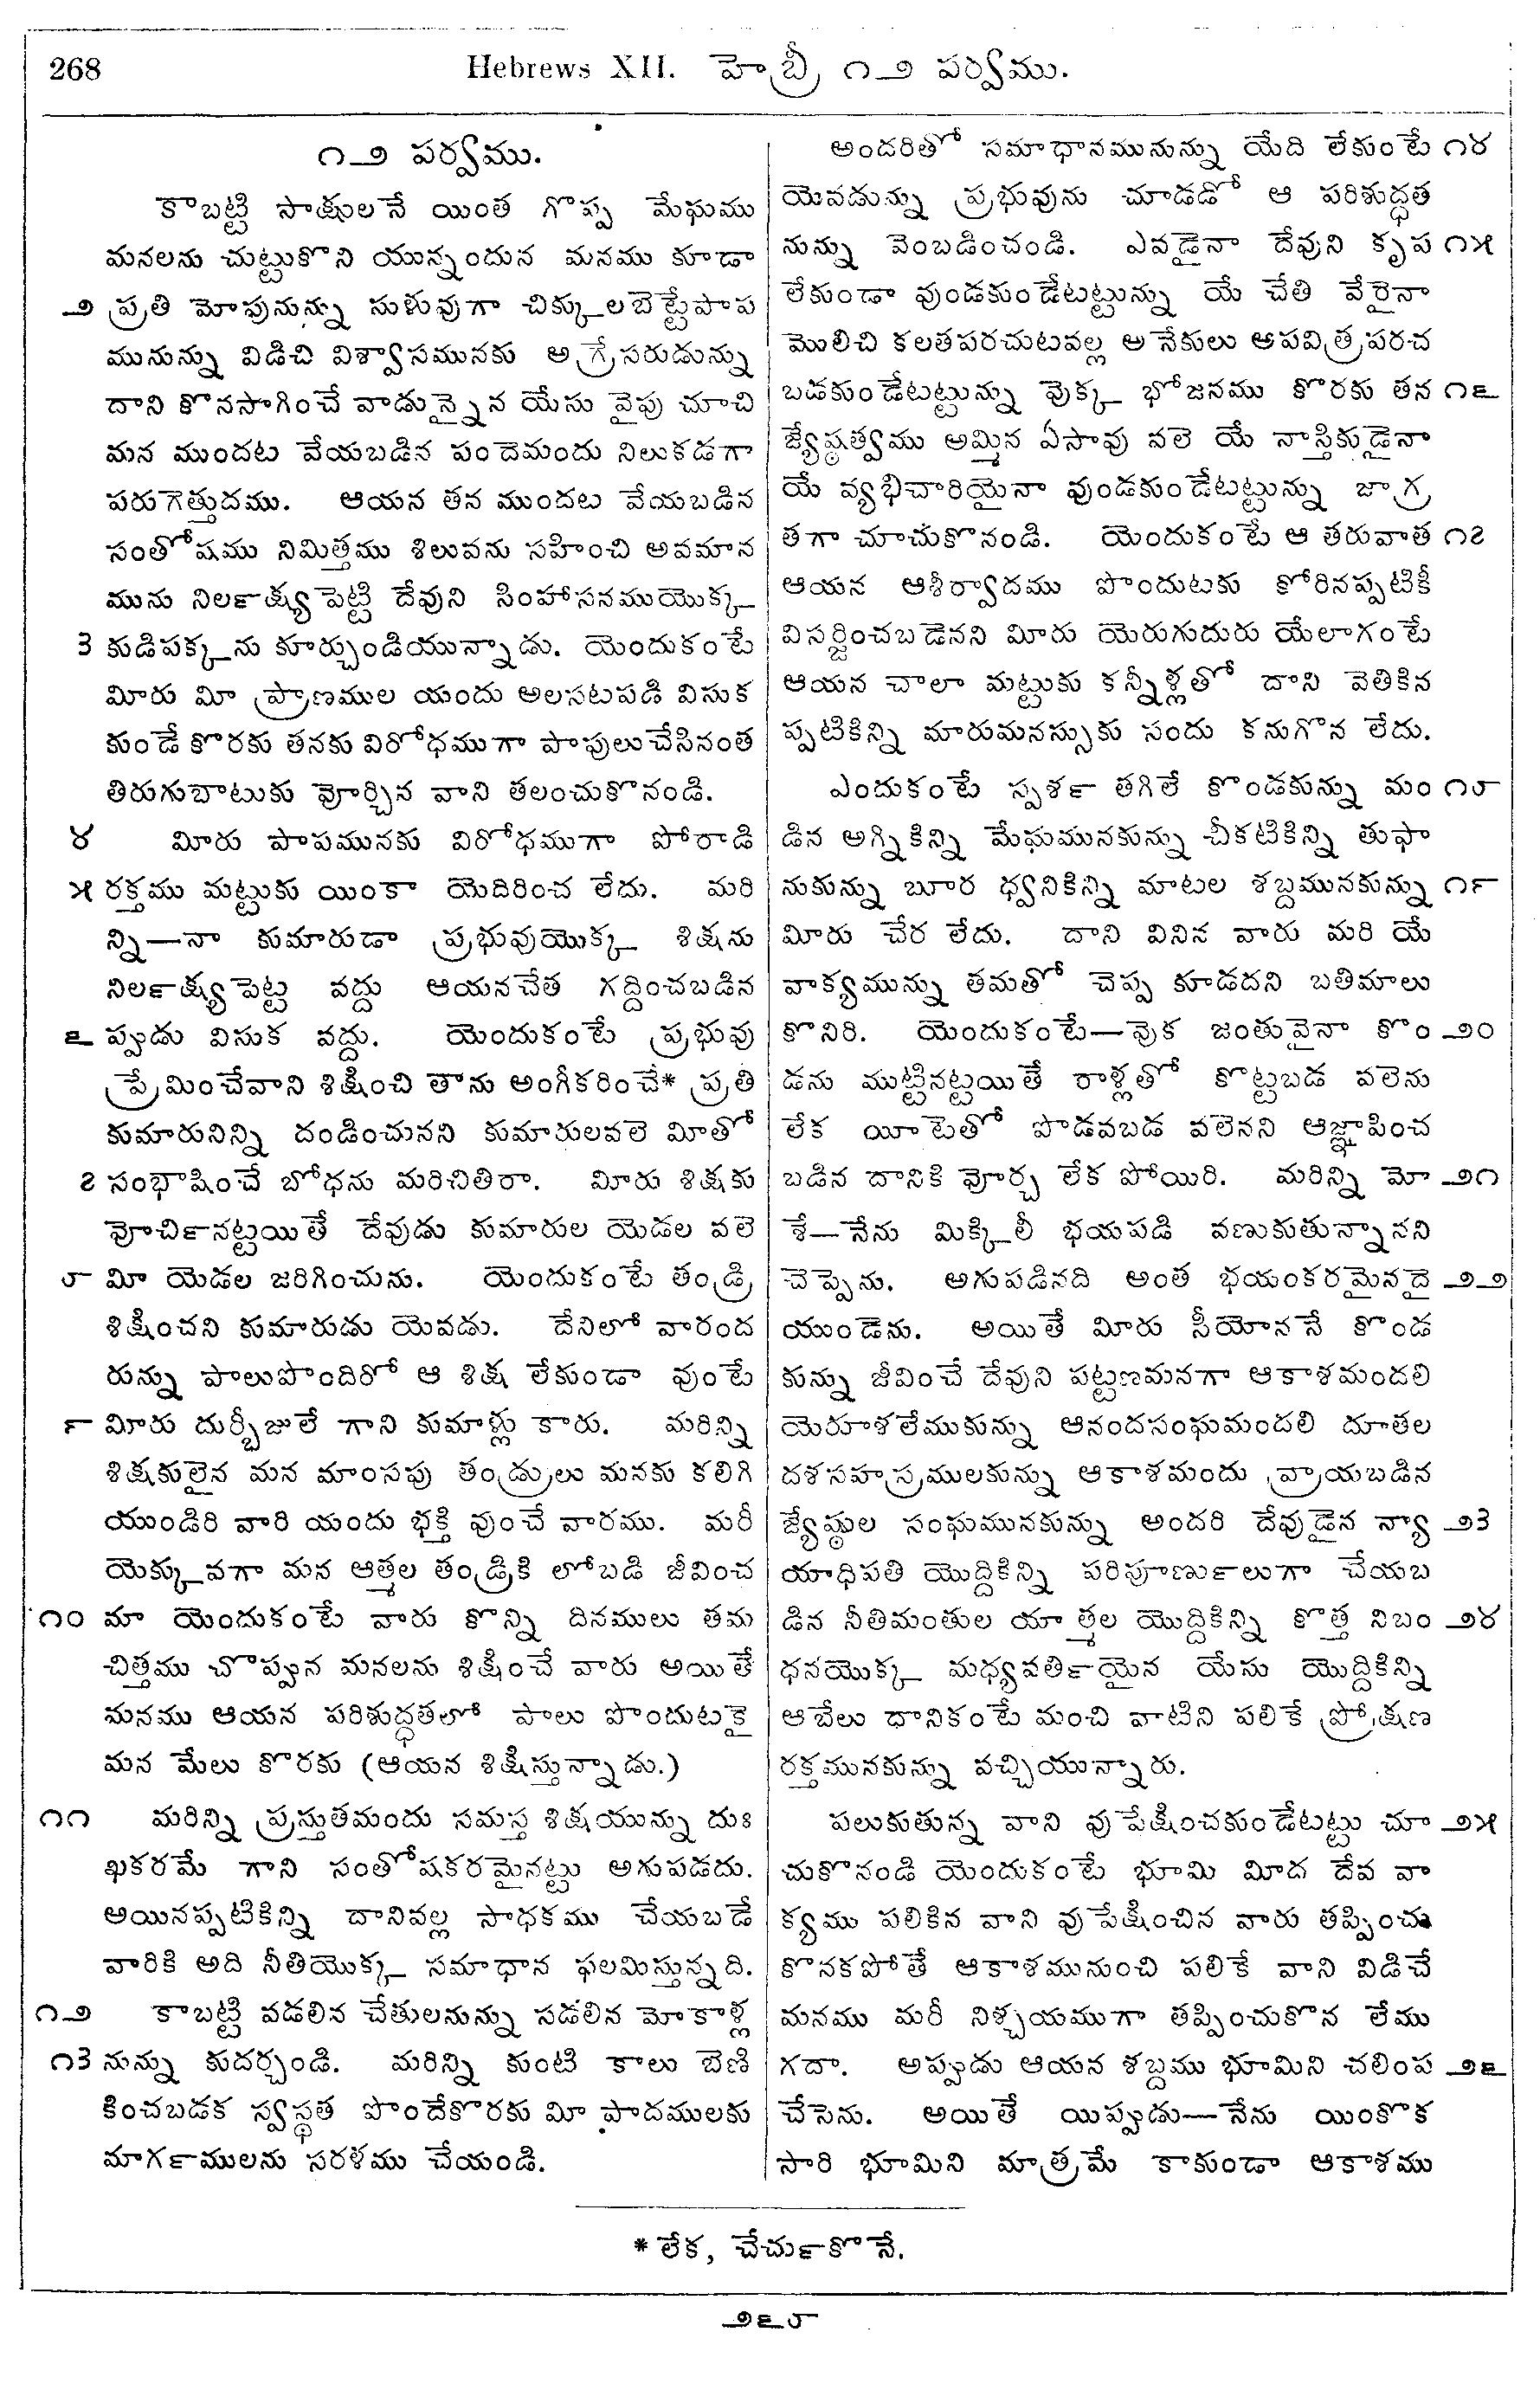 268
Hebrews XII. హెబ్రీ ౧౨ పర్వము.
౧౨ పర్వము.
కాబట్టి సాక్షులనే యింత గొప్ప మేఘము
మనలను చుట్టుకొని యున్నందున మనము కూడా
౨ ప్రతి మోపునున్ను సుళువుగా చిక్కులబెట్టేపాప
మునున్ను విడిచి విశ్వాసమునకు అగ్రేసరుడున్ను
దాని కొనసాగించే వాడున్నైన యేసు వైపు చూచి
మన ముందట వేయబడిన పందెమందు నిలుకడగా
పరుగెత్తుదము. ఆయన తన ముందట వేయబడిన
సంతోషము నిమిత్తము శిలువను సహించి అవమాన
మును నిలఁక్ష్యపెట్టి దేవుని సింహాసనముయొక్క
3 కుడిపక్కను కూర్చుండియున్నాడు. యెందుకంటే
మీరు మీ ప్రాణముల యందు అలసటపడి విసుక
కుండే కొరకు తనకు విరోధముగా పాపులుచేసినంత
తిరుగుబాటుకు వోర్చిన వాని తలంచుకొనండి.
౪ మీరు పాపమునకు విరోధముగా పోరాడి
౫ రక్తము మట్టుకు యింకా యెదిరించ లేదు. మరి
న్ని—నా కుమారుడా ప్రభువుయొక్క శిక్షను
నిలఁక్ష్యపెట్ట వద్దు ఆయనచేత గద్దించబడిన
౬ ప్పుడు విసుక వద్దు. యెందుకంటే ప్రభువు
ప్రేమించేవాని శిక్షించి తాను అంగీకరించే* ప్రతి
కుమారునిన్ని దండించునని కుమారులవలె మీతో
౭ సంభాషించే బోధను మరిచితిరా. మీరు శిక్షకు
వోచిఁనట్టయితే దేవుడు కుమారుల యెడల వలె
౮ మీ యెడల జరిగించును. యెందుకంటే తండ్రి
శిక్షించని కుమారుడు యెవడు. దేనిలో వారంద
రున్ను పాలుపొందిరో ఆ శిక్ష లేకుండా వుంటే
౯ మీరు దుర్బీజులే గాని కుమాళ్లు కారు. మరిన్ని
శిక్షకులైన మన మాంసపు తండ్రులు మనకు కలిగి
యుండిరి వారి యందు భక్తి వుంచే వారము. మరీ
యెక్కువగా మన ఆత్మల తండ్రికి లోబడి జీవించ
౧౦ మా యెందుకంటే వారు కొన్ని దినములు తమ
చిత్తము చొప్పున మనలను శిక్షించే వారు అయితే
మనము ఆయన పరిశుద్ధతలో పాలు పొందుటకై
మన మేలు కొరకు (ఆయన శిక్షిస్తున్నాడు.)
౧౧ మరిన్ని ప్రస్తుతమందు సమస్త శిక్షయున్ను దుః
ఖకరమే గాని సంతోషకరమైనట్టు అగుపడదు.
అయినప్పటికిన్ని దానివల్ల సాధకము చేయబడే
వారికి అది నీతియొక్క సమాధాన ఫలమిస్తున్నది.
౧౨ కాబట్టి వడలిన చేతులనున్ను సడలిన మోకాళ్ల
౧3 నున్ను కుదర్చండి. మరిన్ని కుంటి కాలు బెణి
కించబడక స్వస్థత పొందేకొరకు మీ పాదములకు
మాగఁములను సరళము చేయండి.
అందరితో సమాధానమునున్ను యేది లేకుంటే ౧౪
యెవడున్ను ప్రభువును చూడడో ఆ పరిశుద్ధత
నున్ను వెంబడించండి. ఎవడైనా దేవుని కృప ౧౫
లేకుండా వుండకుండేటట్టున్ను యే చేతి వేరైనా
మొలిచి కలతపరచుటవల్ల అనేకులు అపవిత్రపరచ
బడకుండేటట్టున్ను వొక్క భోజనము కొరకు తన ౧౬
జ్యేష్ఠత్వము అమ్మిన ఏసావు వలె యే నాస్తికుడైనా
యే వ్యభిచారియైనా వుండకుండేటట్టున్ను జాగ్ర
తగా చూచుకొనండి. యెందుకంటే ఆ తరువాత ౧౭
ఆయన ఆశీర్వాదము పొందుటకు కోరినప్పటికీ
విసర్జించబడెనని మీరు యెరుగుదురు యేలాగంటే
ఆయన చాలా మట్టుకు కన్నీళ్లతో దాని వెతికిన
ప్పటికిన్ని మారుమనస్సుకు సందు కనుగొన లేదు.
ఎందుకంటే స్పశఁ తగిలే కొండకున్ను మం ౧౮
డిన అగ్నికిన్ని మేఘమునకున్ను చీకటికిన్ని తుఫా
నుకున్ను బూర ధ్వనికిన్ని మాటల శబ్దమునకున్ను ౧౯
మీరు చేర లేదు. దాని వినిన వారు మరి యే
వాక్యమున్ను తమతో చెప్ప కూడదని బతిమాలు
కొనిరి. యెందుకంటే—వొక జంతువైనా కొం ౨౦
డను ముట్టినట్టయితే రాళ్లతో కొట్టబడ వలెను
లేక యీటెతో పొడవబడ వలెనని ఆజ్ఞాపించ
బడిన దానికి వోర్చ లేక పోయిరి. మరిన్ని మో ౨౧
శే—నేను మిక్కిలీ భయపడి వణుకుతున్నానని
చెప్పెను. అగుపడినది అంత భయంకరమైనదై ౨౨
యుండెను. అయితే మీరు సీయోననే కొండ
కున్ను జీవించే దేవుని పట్టణమనగా ఆకాశమందలి
యెరూశలేముకున్ను ఆనందసంఘమందలి దూతల
దశసహస్రములకున్ను ఆకాశమందు వ్రాయబడిన
జ్యేష్ఠుల సంఘమునకున్ను అందరి దేవుడైన న్యా ౨3
యాధిపతి యొద్దికిన్ని పరిపూణుఁలుగా చేయబ
డిన నీతిమంతుల యాత్మల యొద్దికిన్ని కొత్త నిబం ౨౪
ధనయొక్క మధ్యవతిఁయైన యేసు యొద్దికిన్ని
ఆబేలు ధానికంటే మంచి వాటిని పలికే ప్రోక్షణ
రక్తమునకున్ను వచ్చియున్నారు.
పలుకుతున్న వాని వుపేక్షించకుండేటట్టు చూ ౨౫
చుకొనండి యెందుకంటే భూమి మీద దేవ వా
క్యము పలికిన వాని వుపేక్షించిన వారు తప్పించు
కొనకపోతే ఆకాశమునుంచి పలికే వాని విడిచే
మనము మరీ నిశ్చయముగా తప్పించుకొన లేము
గదా. అప్పుడు ఆయన శబ్దము భూమిని చలింప ౨౬
చేసెను. అయితే యిప్పుడు—నేను యింకొక
సారి భూమిని మాత్రమే కాకుండా ఆకాశము
* లేక, చేచుఁకొనే.
౨౬౮